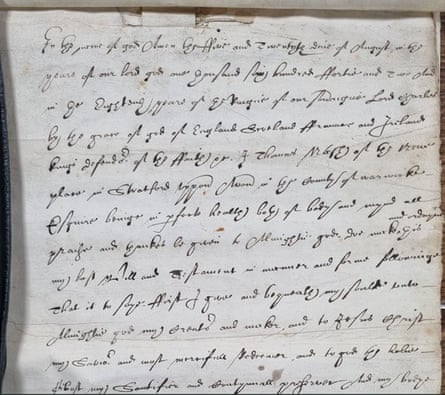 In the name of god Amen the ffive and Twentyth daie of August in the
yeare of our lord god one thousand six hundred ffortie and Two And
in the Eighteenth yeare of the Raigne of our Soveraigne Lord Charles
by the grace of god of England Scotland ffraunce and Ireland
kinge defender of the ffaith &c. I Thomas Nash of the Newe
place in Stratford uppon Avon in the County of warwicke
Esquire beinge in perfect health both of body and mynd all
prayse and thankes be given to Almightie god doe make and ordayne this
my last Will and Testament in manner and forme followinge
That is to saye ffirst I gave and bequeath my soule unto
Almightie god my Creator and maker and to Jesus Christ
my Savior and most mercifull Redeemer and to god the holie
Ghost my Sanctifier and preserver And my bodye